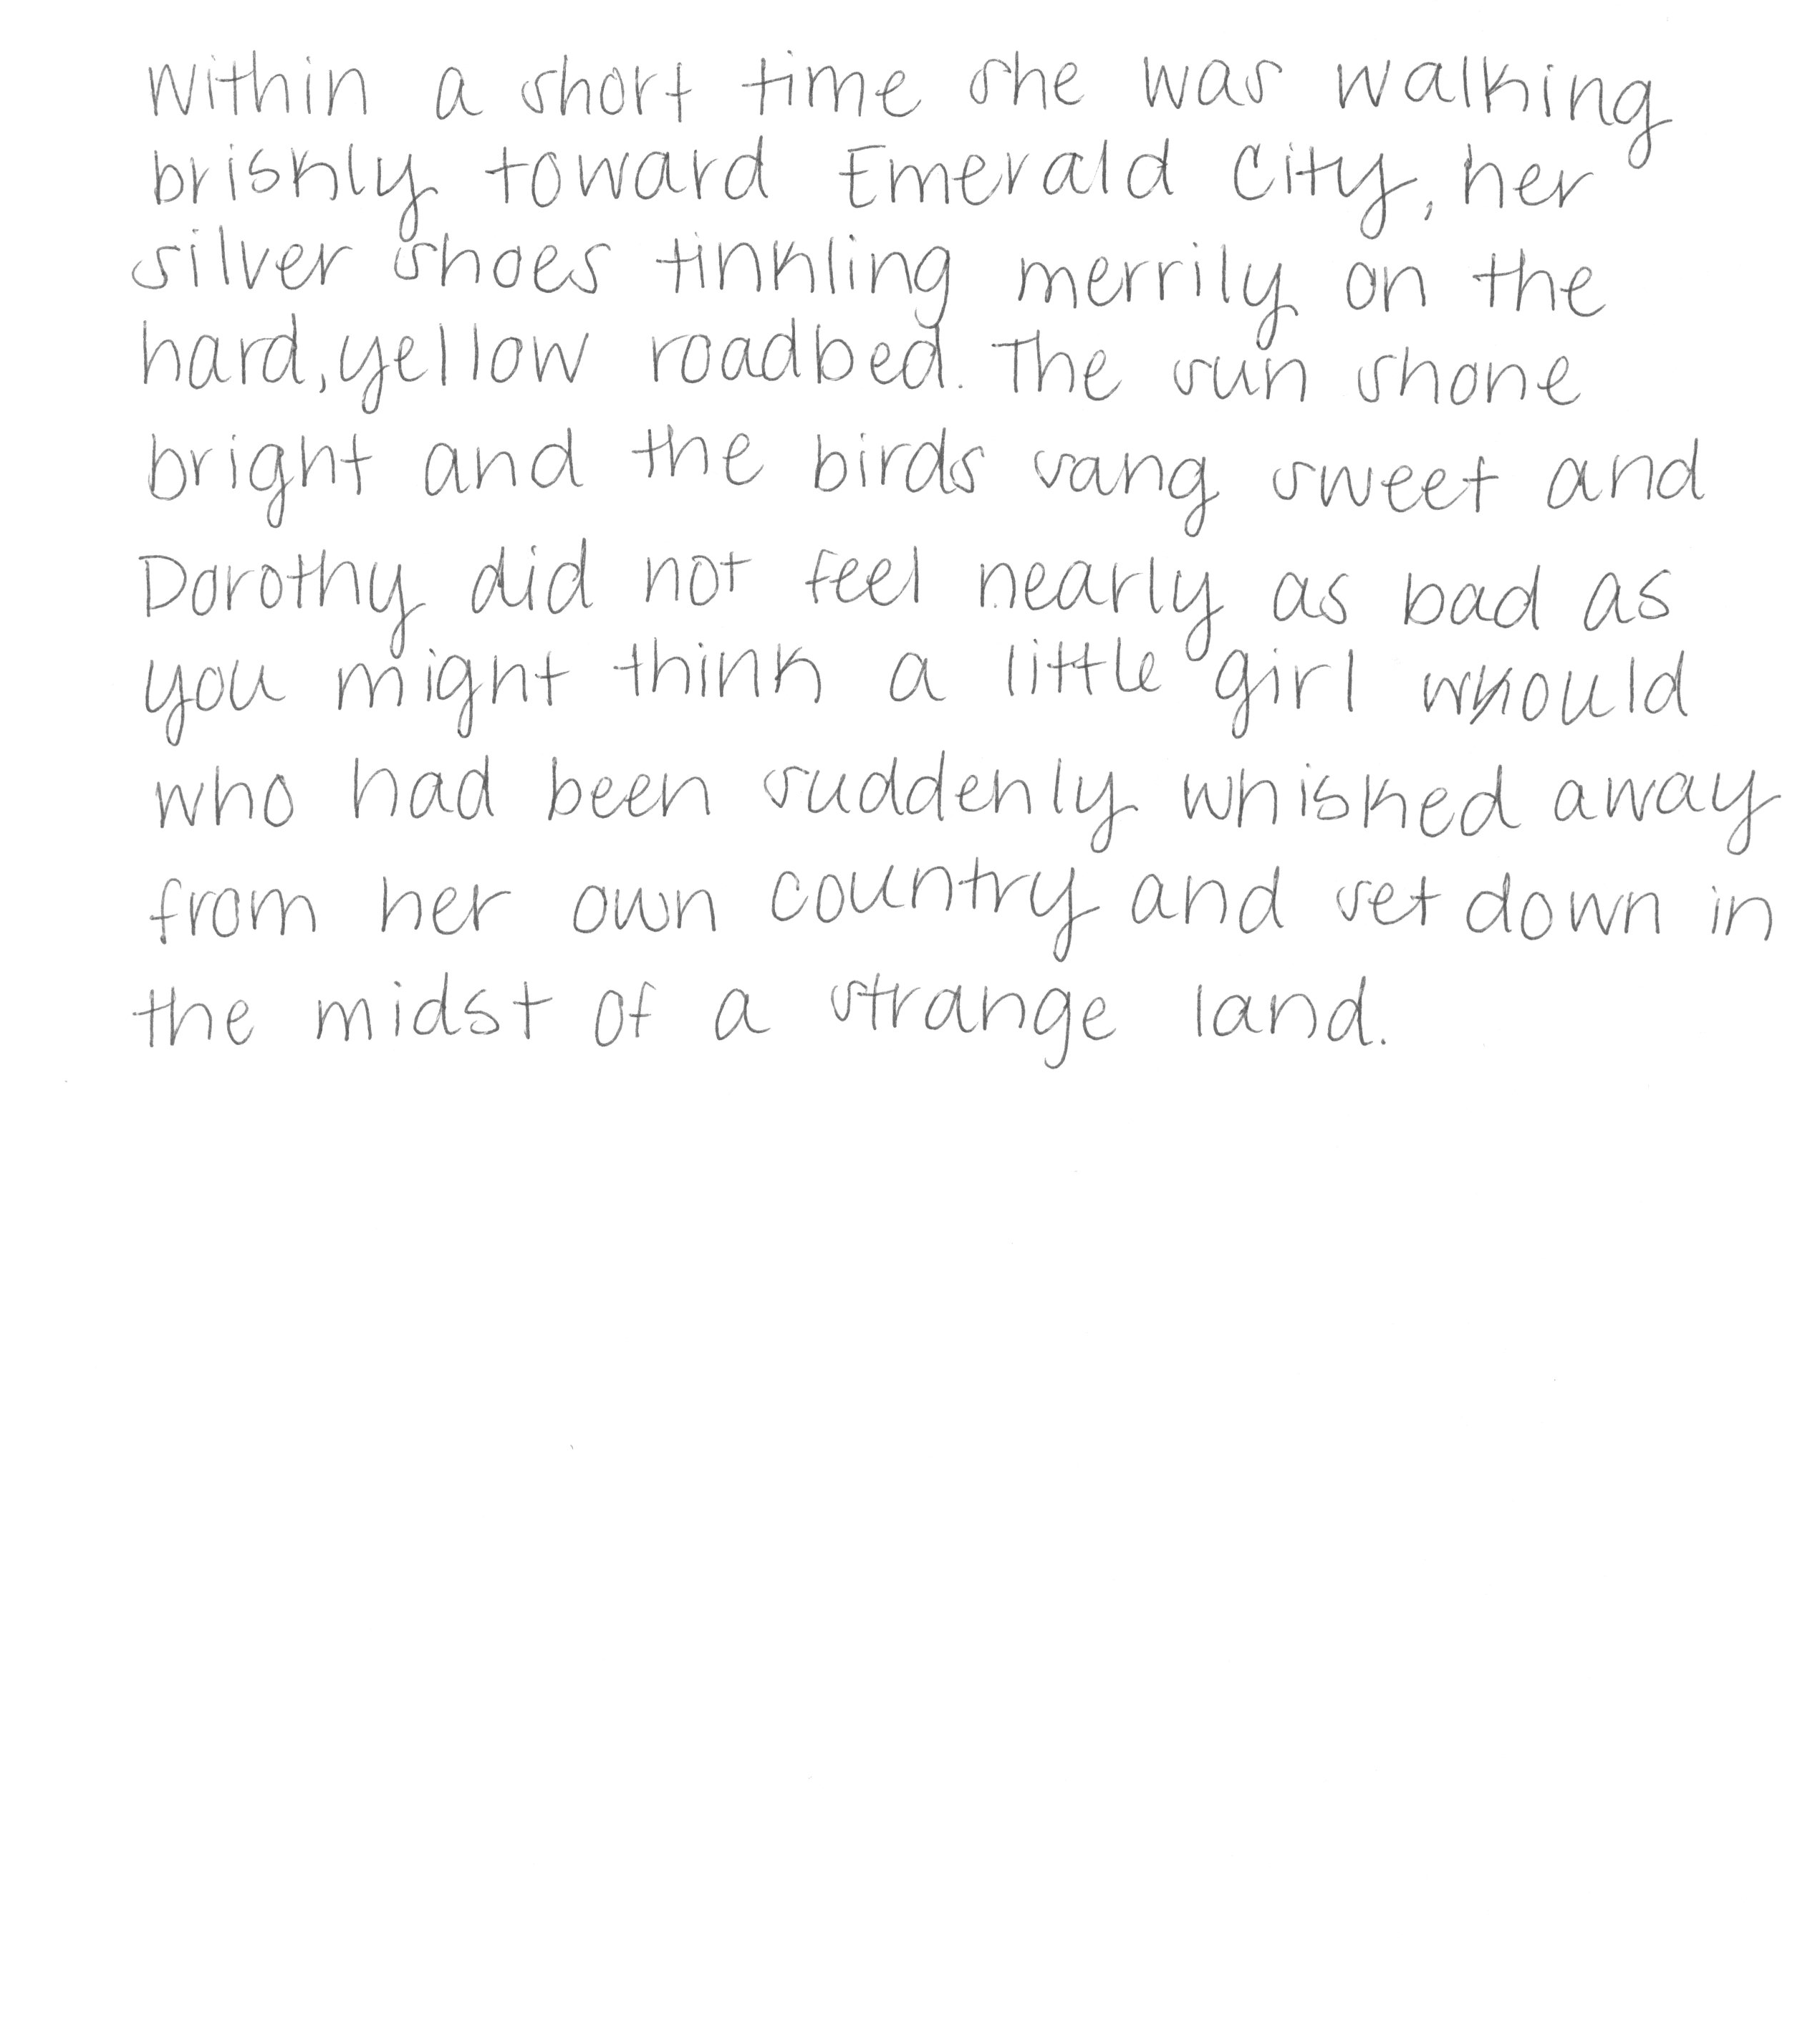 Within a short time she was walking
briskly toward Emerald City, her
silver shoes tinkling merrily on the
hard, yellow roadbed. The sun shone
bright and the birds sang sweet and
Dorothy did not feel nearly as bad as
you might think a little girl would
who had been suddenly whisked away
from her own country and set down in
the midst of a strange land.